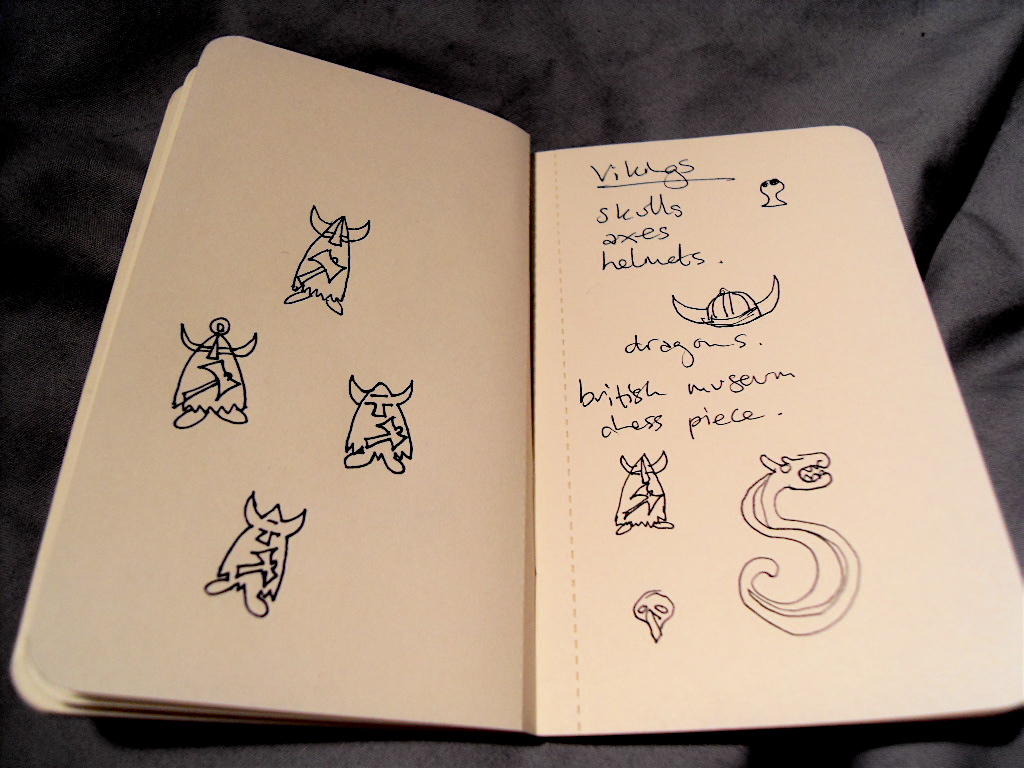 Vikings
skulls
axes
helmets.
dragons.
british museum
chess piece.